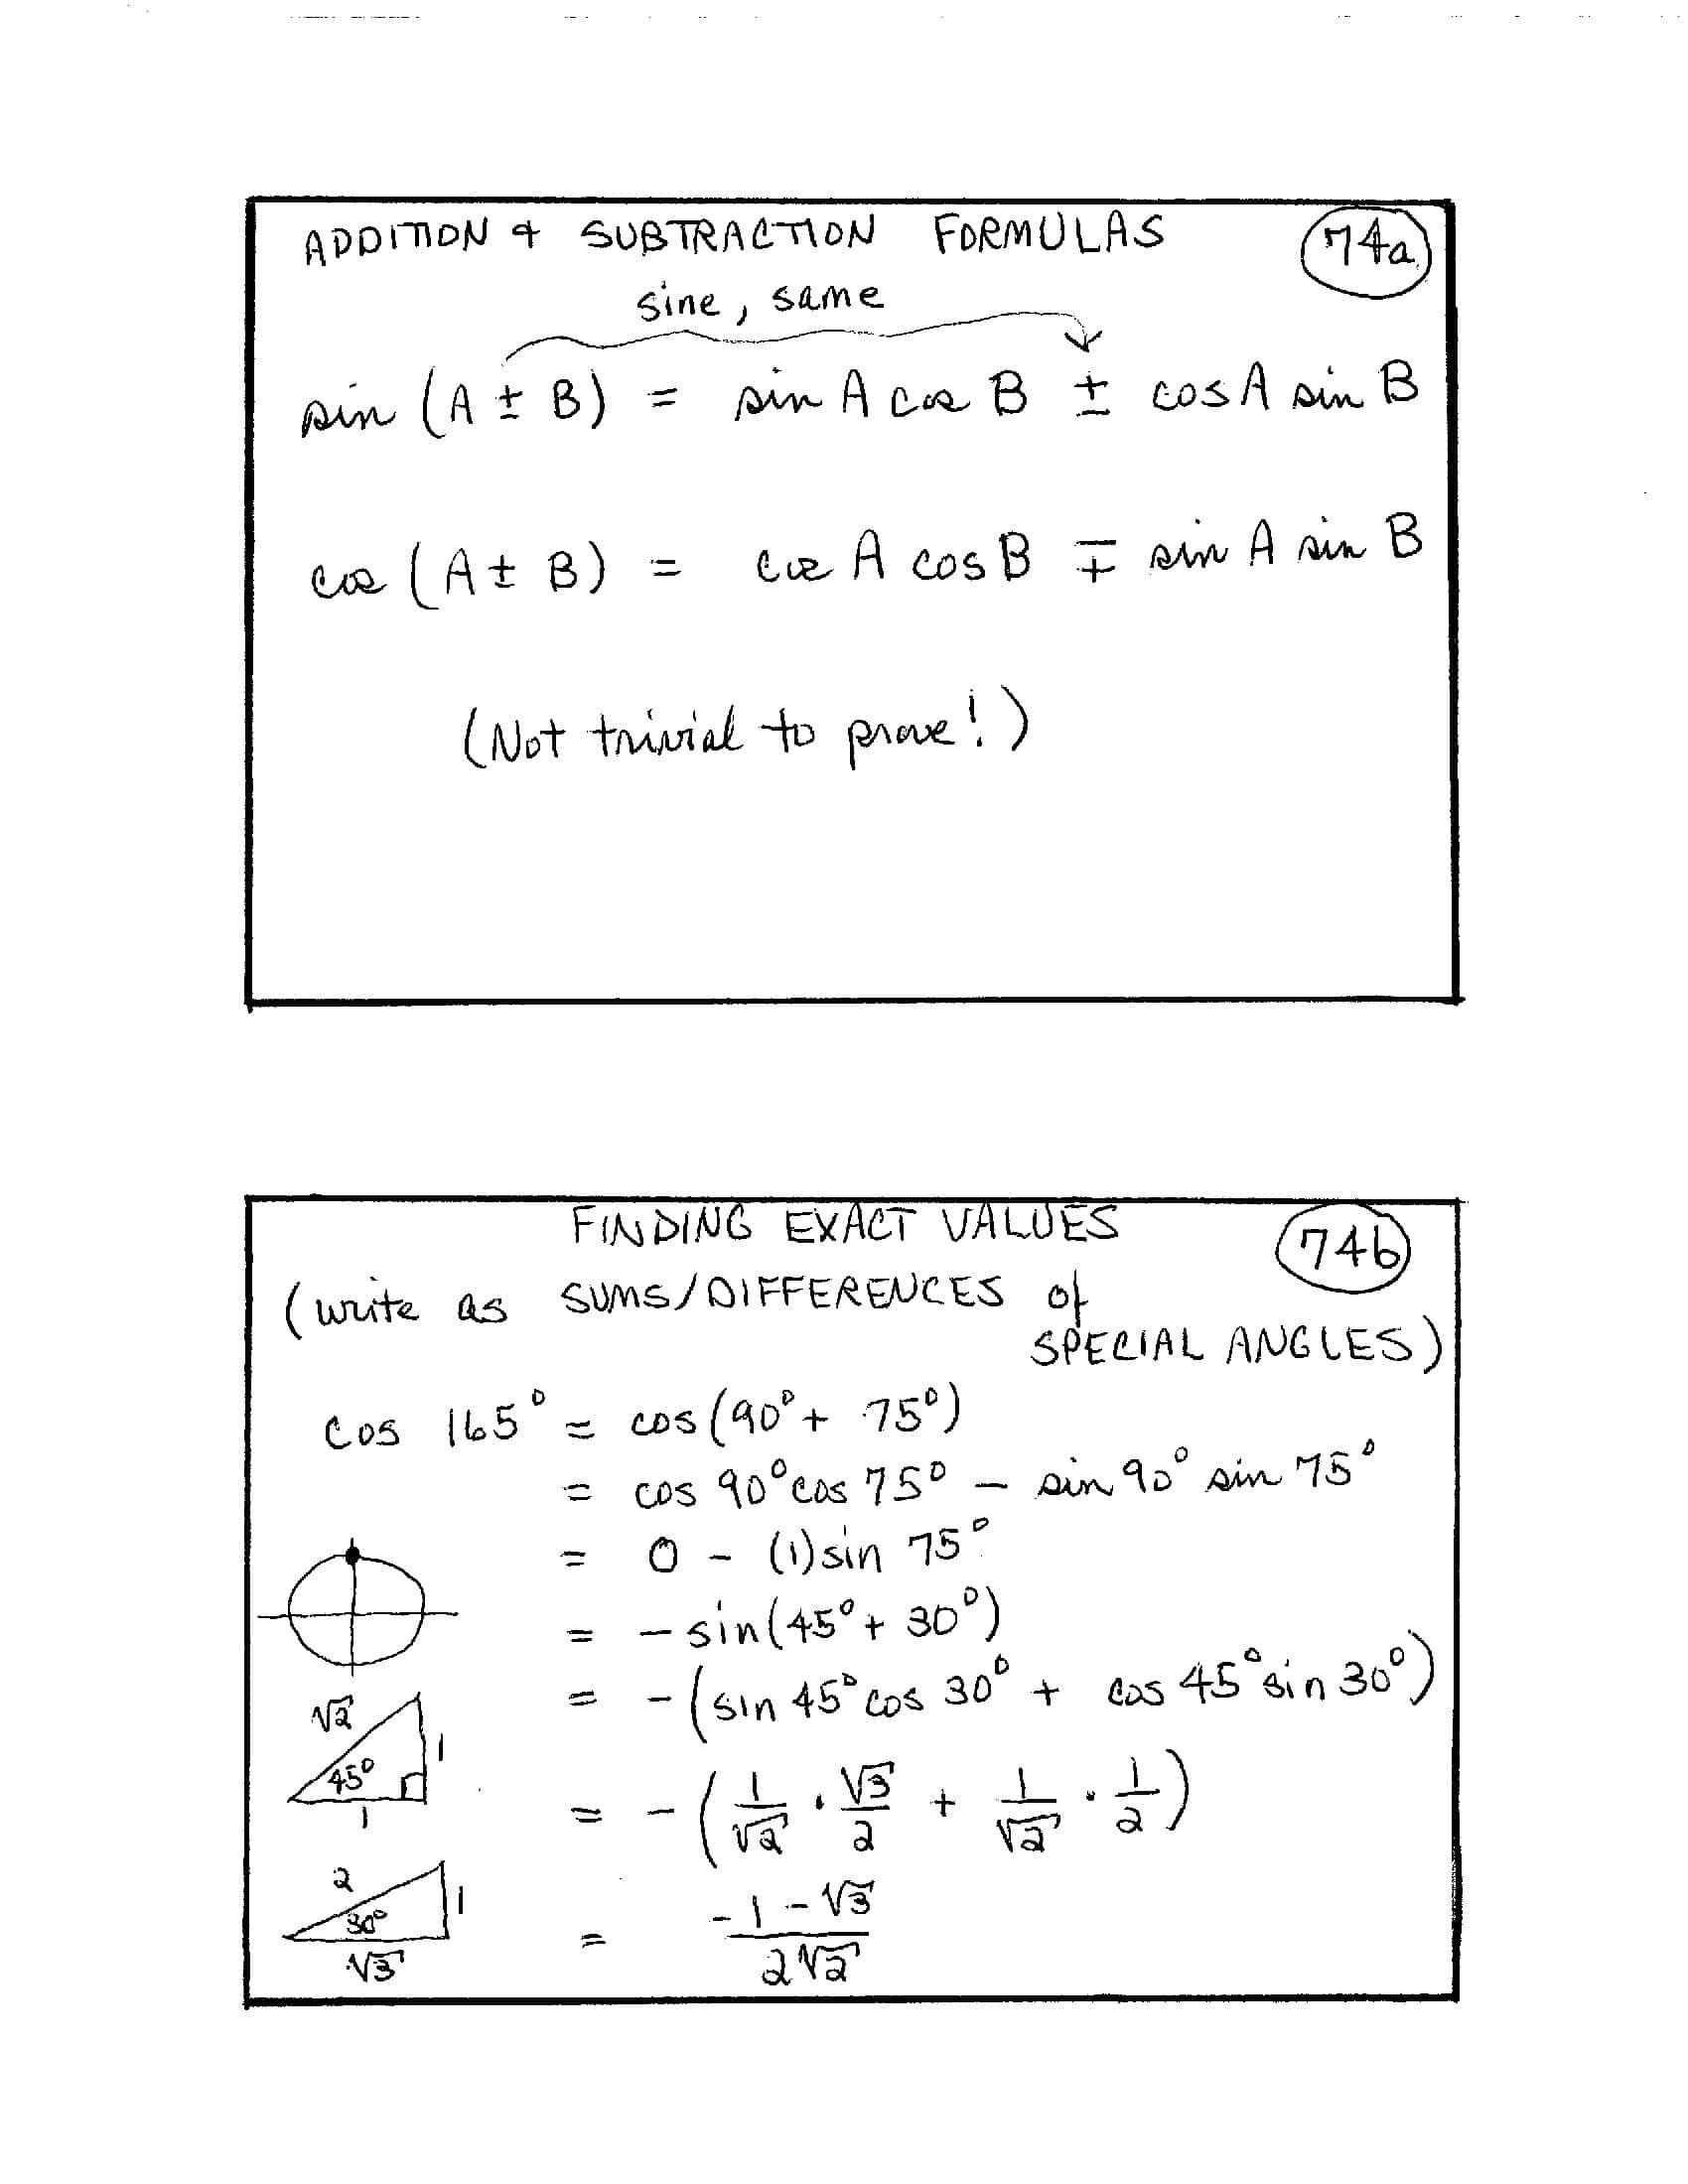 ADDITION & SUBTRACTION FORMULAS 74a
sine, same
sin (A ± B) = sin A cos B ± cos A sin B
cos (A ± B) = cos A cos B ∓ sin A sin B
(Not trivial to prove!)
FINDING EXACT VALUES 74b
(write as SUMS/DIFFERENCES of
SPECIAL ANGLES)
cos 165° = cos(90° + 75°)
= cos 90° cos 75° − sin 90° sin 75°
= 0 − (1) sin 75°
= − sin(45° + 30°)
= −(sin 45° cos 30° + cos 45° sin 30°)
√2
45°
1
1
= −(1/√2 · √3/2 + 1/√2 · 1/2)
2
30°
1
√3
= (-1 − √3)/(2√2)